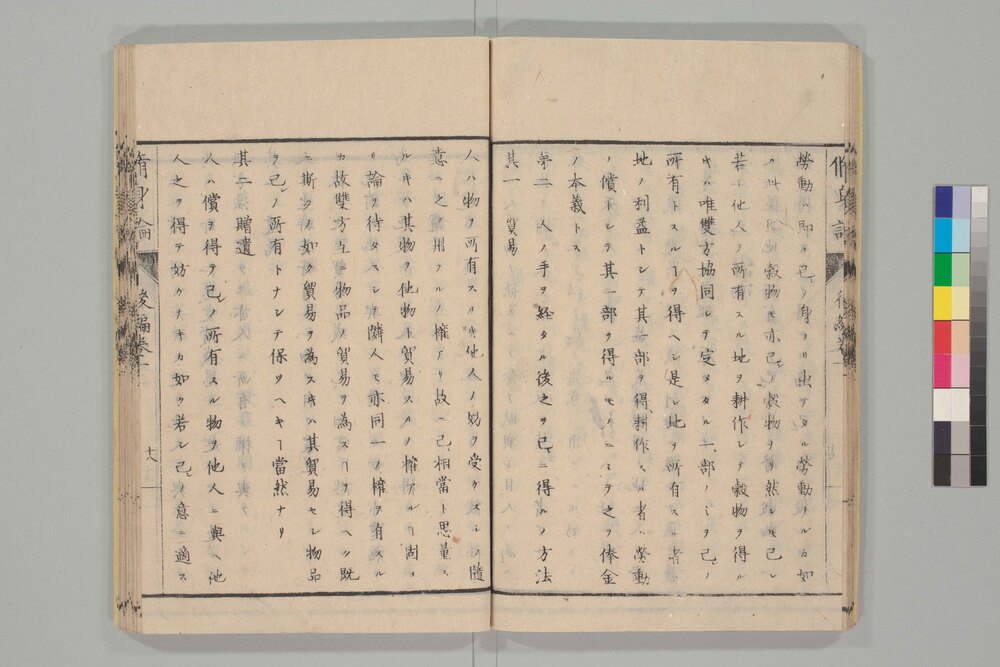 勞動ハ即チ己ノ身ヨリ出テタル勞動ナルカ如
穀物モ亦己ノ穀物ナリ然レ𪜈己レ
若シ他人ノ所有スル地ヲ耕作シテ穀物ヲ得ル
キハ唯雙方協同シテ定メタル一部ノミヲ己ノ
所有トスルヿヲ得ヘシ是レ地ヲ所有スル者ハ
地ノ利益トシテ其一部ヲ得耕作スル者ハ勞動
ノ償トシテ其一部ヲ得ルモノニ乄之ヲ俸金
ノ本義トス
第二 人ノ手ヲ経タル後之ヲ己ニ得ルノ方法
其一 貿易
人ハ物ヲ所有スルキ他人ノ妨ヲ受ケスシテ隨
意ニ之ヲ處用スルノ權アリ故ニ己相當ト思量ス
ルキハ其物ヲ他物ト貿易スルノ權アルヿ固ヨ
リ論ヲ待タスシテ隣人モ亦同一ノ權ヲ有スル
カ故雙方互ニ物品ノ貿易ヲ為スヿヲ得ヘク既
ニ斯クノ如ク貿易ヲ為スキハ其貿易セシ物品
ヲ己ノ所有トナシテ保ツヘキヿ當然ナリ
其二 贈遺
人ハ償ヲ得テ己ノ所有スル物ヲ他人ニ與ヘ他
人之ヲ得テ妨ケナキカ如ク若シ己ノ意ニ適ス
脩身論 後編卷 十八